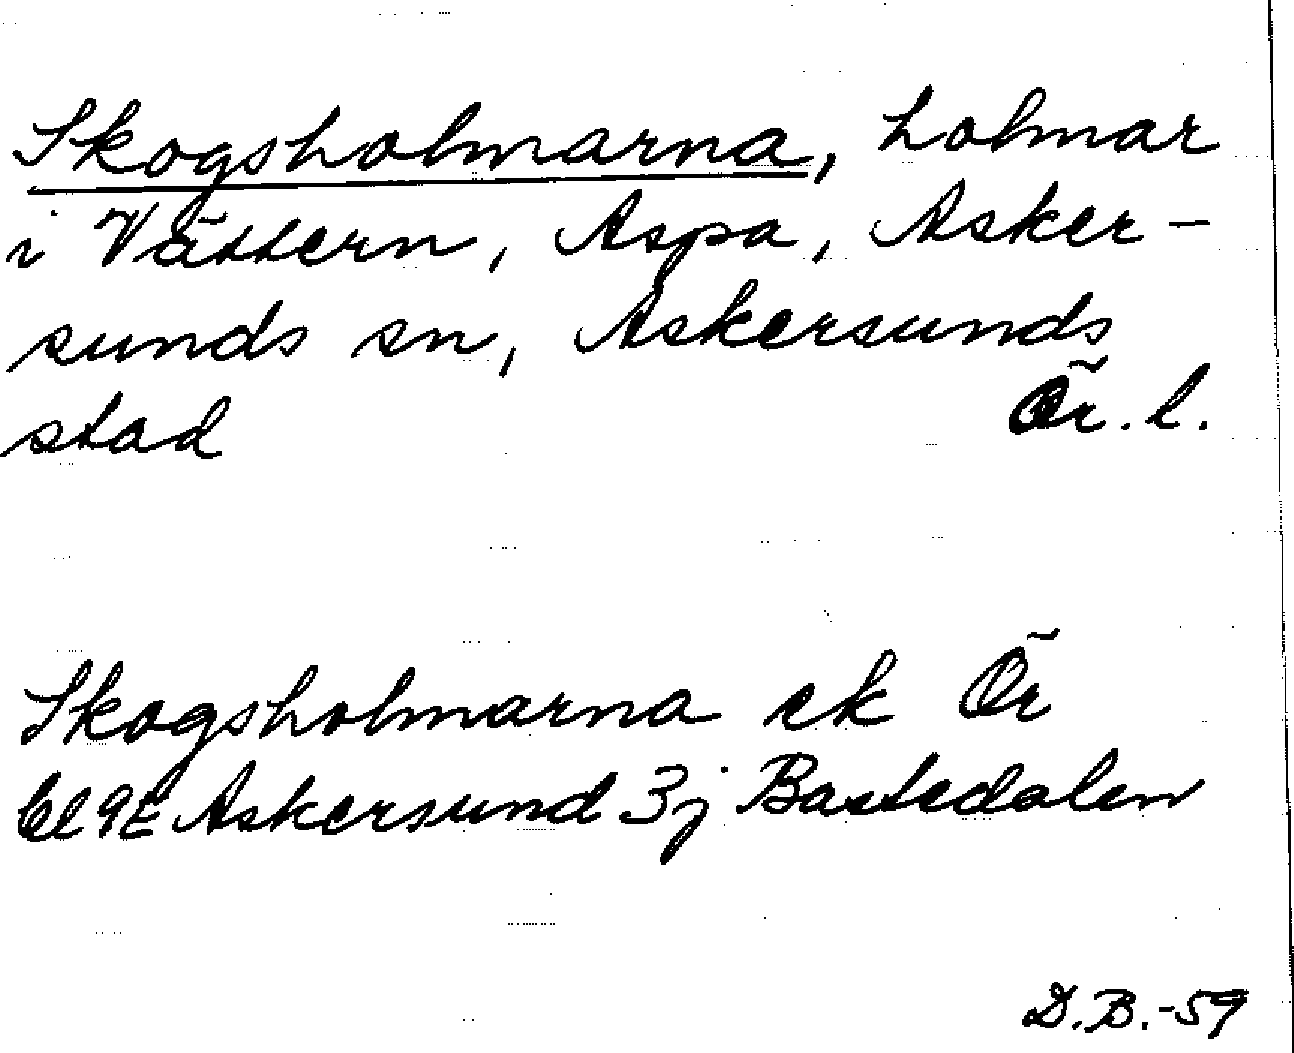 Skogsholmarna, holmar
i Vättern, Aspa, Asker-
sunds sn, Askersunds
stad Ör. l.
Skogsholmarna ek Ör
9E Askersund 3j Bastedalen
D.B.-59